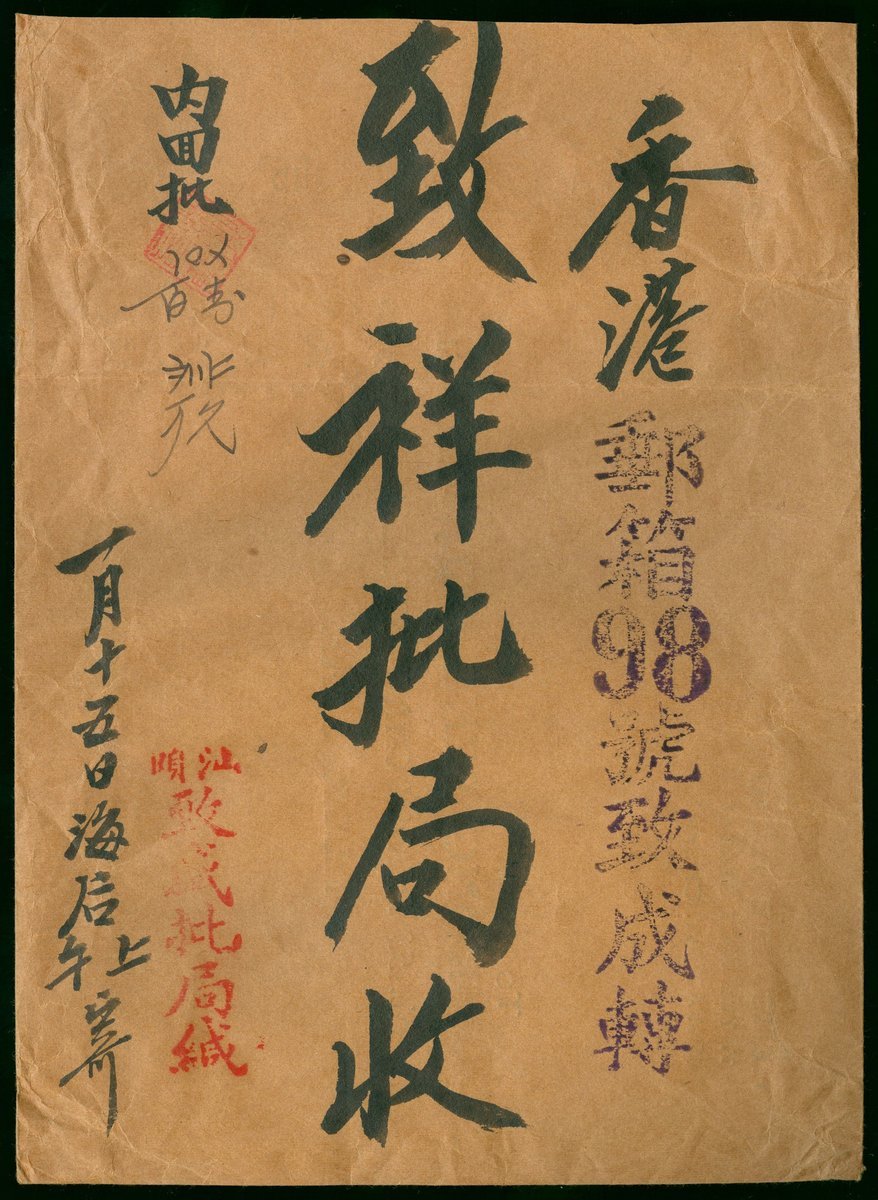 香港郵箱98號致成轉
致祥批局收
內回批
百
汕
頭
致成批局緘
一月十五日海后上午寄